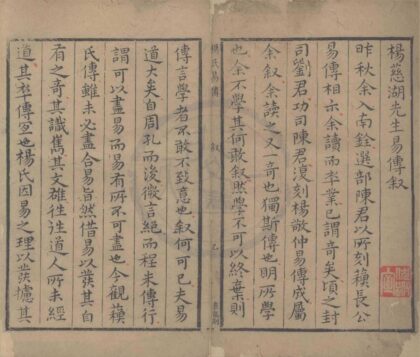 楊慈湖先生易傳叙
昨秋余入南銓選部陳君以所刻蘓長公
易傳相示余讀而卒業已謂奇矣頃之封
司劉君功司陳君復刻楊敬仲易傳成屬
余叙余讀之又一奇也獨斯傳也明所學
也余不學其何敢叙然學不可以終棄則
傳言學者不敢不致意也叙何可已夫易
道大矣自周孔而後微言絕而程朱傳行
謂可以盡易而易有所不可盡也今觀蘓
氏傳雖未必盡合易旨然借易以發其自
有之奇其識雋其文雄往往道人所未經
道其孤傳宜也楊氏因易之理以發攄其
楊氏易傳
叙